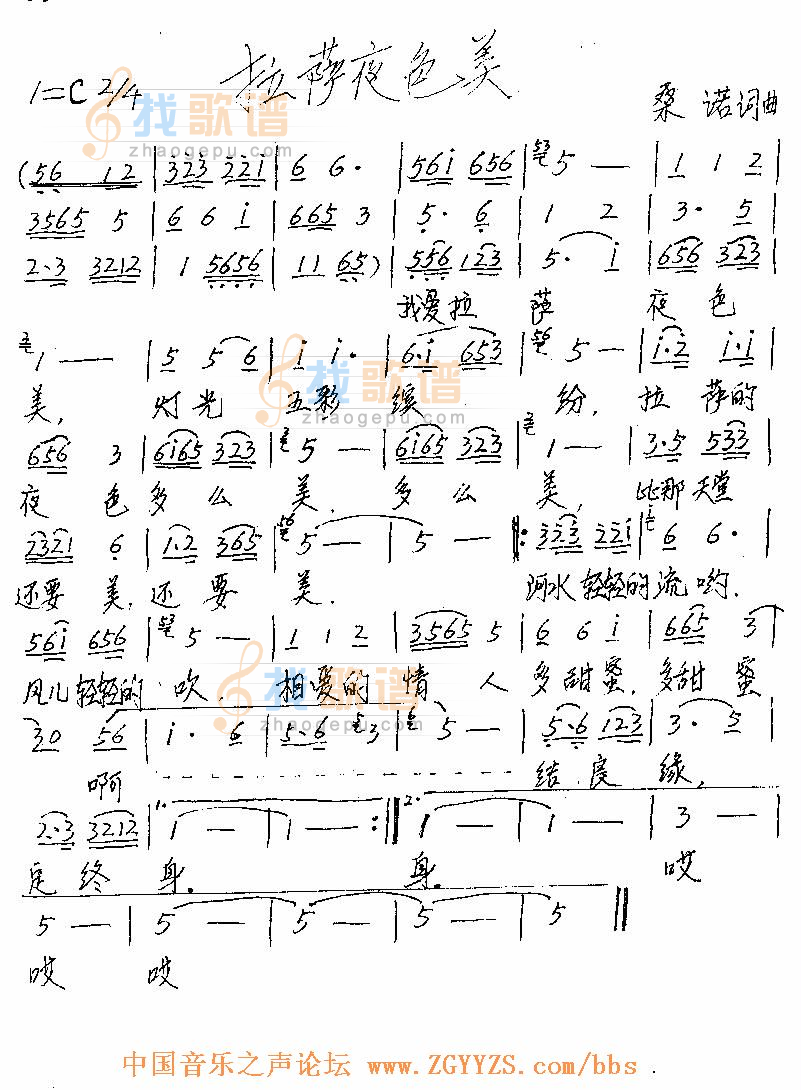 拉萨夜色美
1=C 2/4
桑诺词曲
找歌谱
zhaogepu.com
(56 12 | 323 221 | 6 6· | 561 656 | 5 — | 1 1 2 |
3565 5 | 6 6 1 | 665 3 | 5· 6 | 1 2 | 3· 5 |
2·3 3212 | 1 5656 | 11 65) | 556 123 | 5· 1 | 656 323 |
我爱拉 萨 夜 色
1 — | 5 5 6 | 1 1· | 6·1 653 | 5 — | 1·2 1·1 |
美, 灯光 五彩 缤 纷, 拉萨的
找歌谱
zhaogepu.com
656 3 | 6165 323 | 5 — | 6165 323 | 1 — | 3·5 533 |
夜色多么 美, 多么 美, 比那天堂
2321 6 | 1·2 365 | 5 — | 5 — |: 323 221 | 6 6· |
还要 美,还要 美. 河水轻轻的流哟.
561 656 | 5 — | 1 1 2 | 3565 5 | 6 6 1 | 665 3 |
风儿轻轻的吹. 相爱的情人多甜蜜,多甜蜜
找歌谱
zhaogepu.com
30 56 | 1· 6 | 5·6 3 | 5 — | 5·6 123 | 3· 5 |
啊 结良缘,
2·3 3212 | 1. 1 — | 1 — :| 2. 1 — | 1 — | 3 — |
定终身. 身. 哎
5 — | 5 — | 5 — | 5 — | 5 ‖
哎 哎
中国音乐之声论坛 www.ZGYYZS.com/bbs